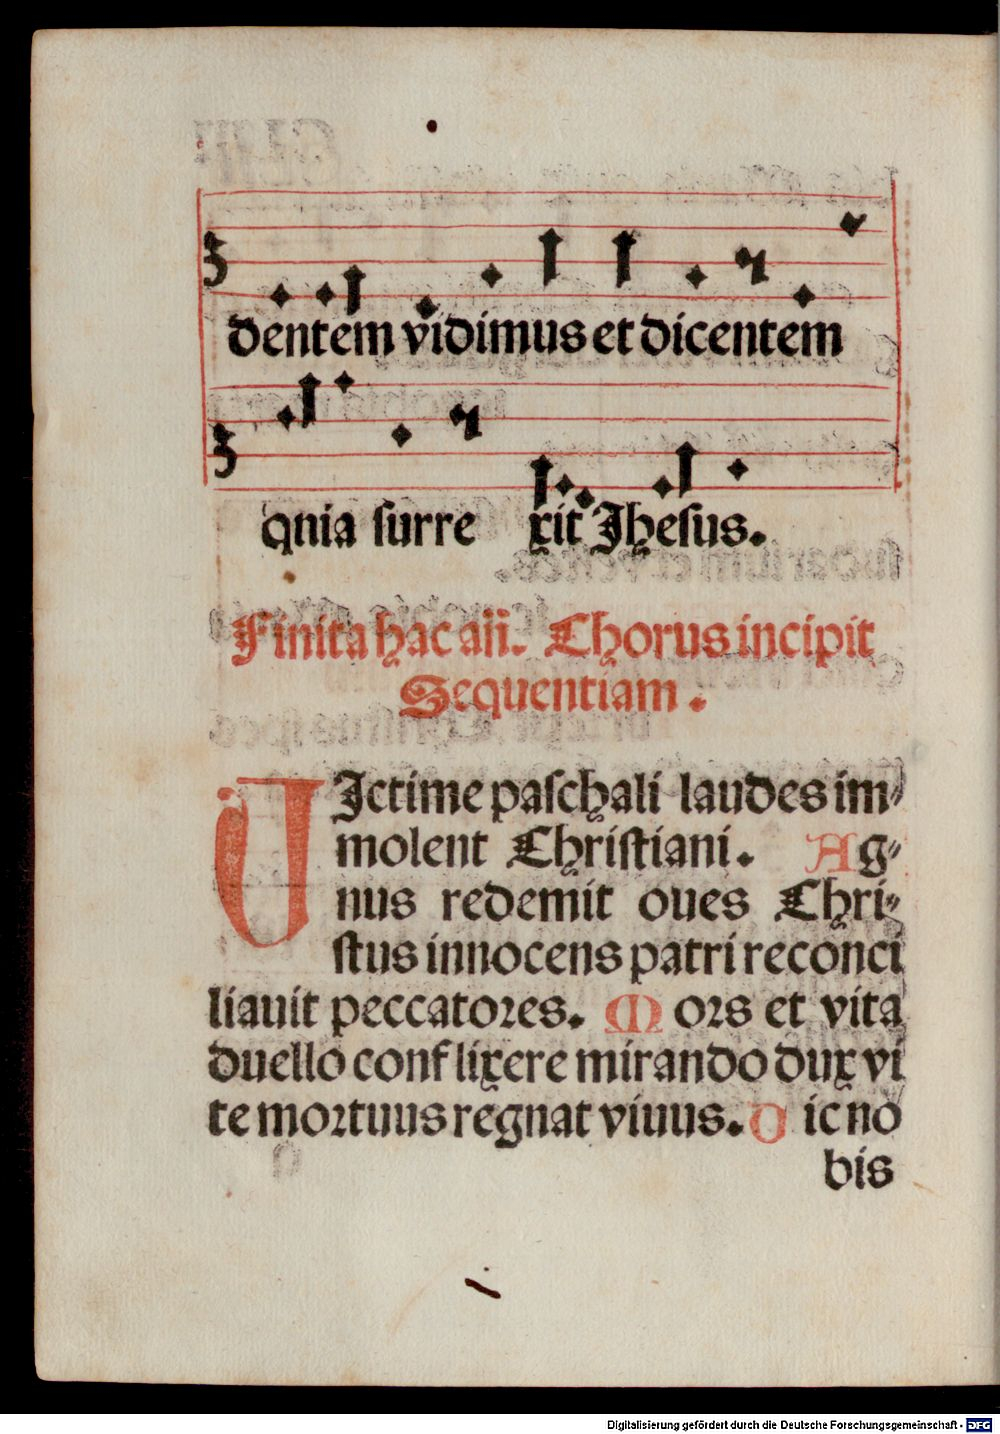 dentem vidimus et dicentem
qnia ſurre xit Jheſus.
Finita hac añ. Chorus incipit
Sequentiam.
VIctime paſchali laudes im⸗
molent Chriſtiani. Ag⸗
nus redemit oues Chri⸗
ſtus innocens patri reconci
liauit peccatoꝛes. Moꝛs et vita
duello conflixere mirando dux vi
te moꝛtuus regnat viuus. Dic no
bis
Digitalisierung gefördert durch die Deutsche Forschungsgemeinschaft - DFG